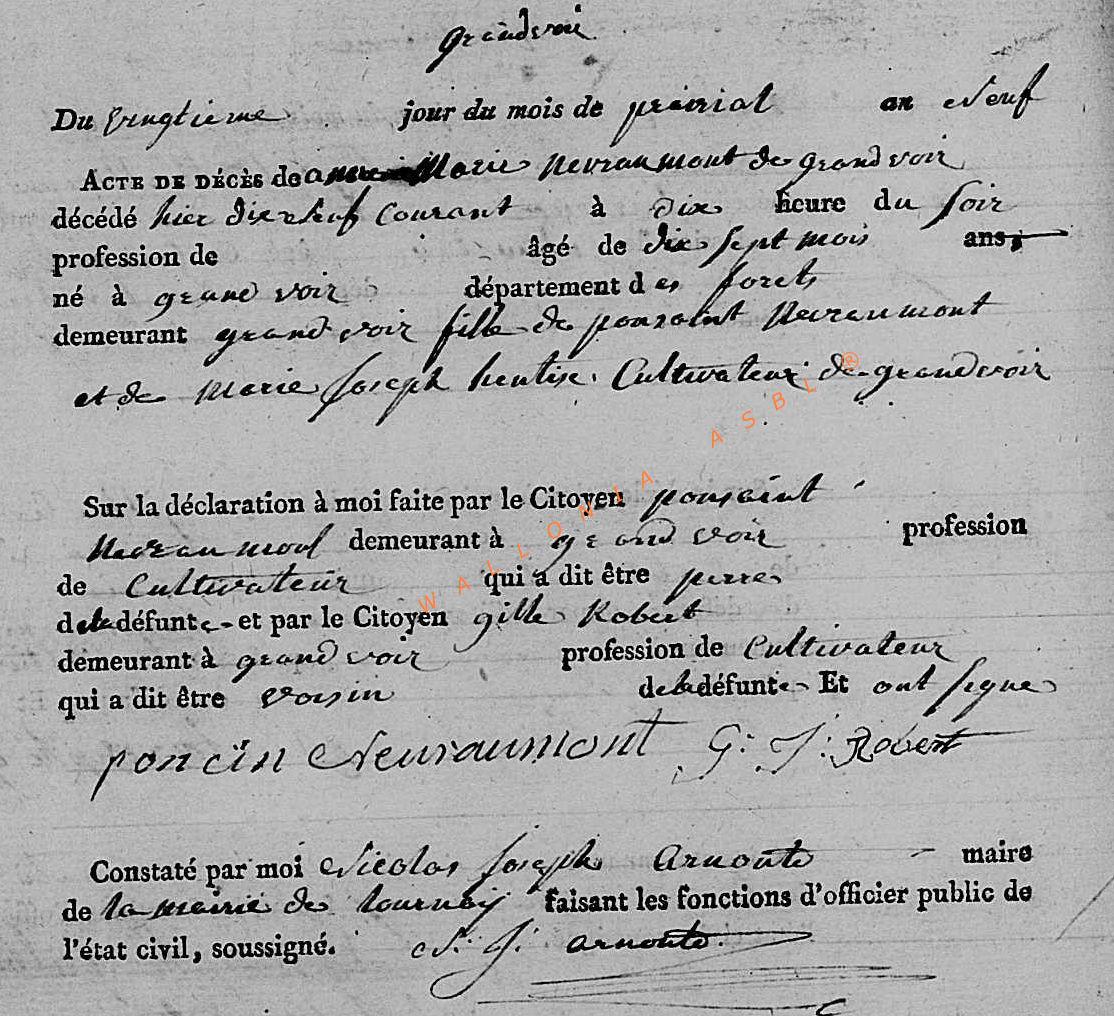 grandvoir
Du vingtieme jour du mois de prairial an Neuf
ACTE DE DÉCÈS de anne Marie Nevraumont de grandvoir
décédé hier dix neuf Courant à dix heure du soir
profession de âgé de dix sept mois ans,
né à grand voir département des forets
demeurant grand voir fille de ponsaint Nevraumont
et de Marie Joseph hentise. Cultivateur de grandvoir
Sur la déclaration à moi faite par le Citoyen ponsaint
demeurant à grand voir profession
de Cultivateur qui a dit être perre
de la défunte et par le Citoyen gille Robert
demeurant à grand voir profession de Cultivateur
qui a dit être voisin de la défunte Et ont signe
poncin Nevraumont G: J: Robert
Constaté par moi Nicolas Joseph Arnould maire
de la mairie de tournay faisant les fonctions d'officier public de
l'état civil, soussigné. N. J. arnould
WALLONIA ASBL ®